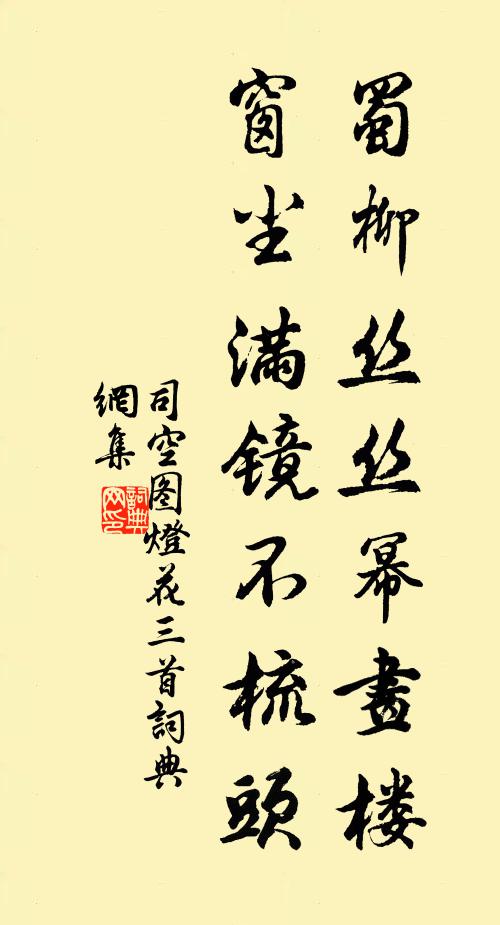 蜀柳丝丝幂畫楼
窗尘满镜不梳頭
司空图燈花三首詞典
網集
詞典
网印